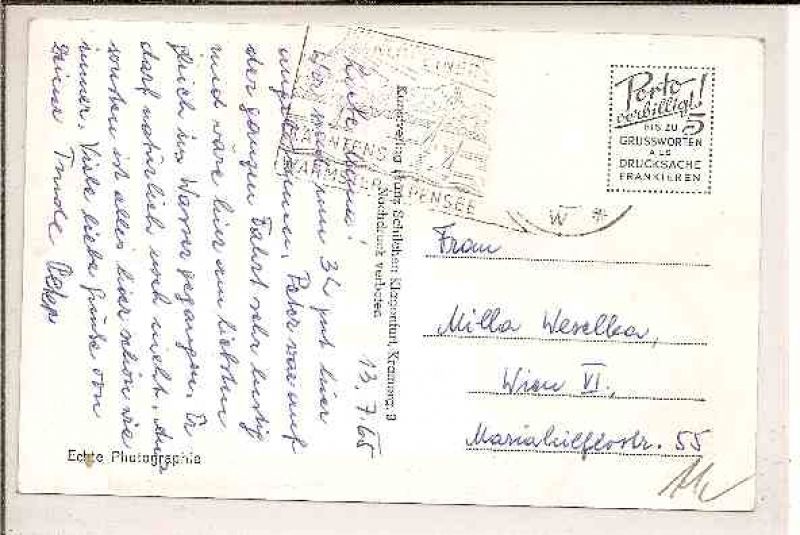 13.7.65
Liebe Mama!
Wir sind um 3h gut hier
angekommen. Peter war auf
der ganzen Fahrt sehr lustig
und wäre hier am liebsten
gleich ins Wasser gegangen. Er
darf natürlich noch nicht.
sonsten ist alles hier schön wie
immer. Viele liebe Grüße von
Deiner Trude Peter
Echte Photographie
Kunstverlag Schilcher, Klagenfurt, Kramerg. 3
Nachdruck verboten
KÄRNTENS
WARMER ALPENSEE
W *
Porto
verbilligt!
BIS ZU 5
GRUSSWORTEN
ALS
DRUCKSACHE
FRANKIEREN
Frau
Milla Weselka,
Wien VI.,
Mariahilferstr. 55